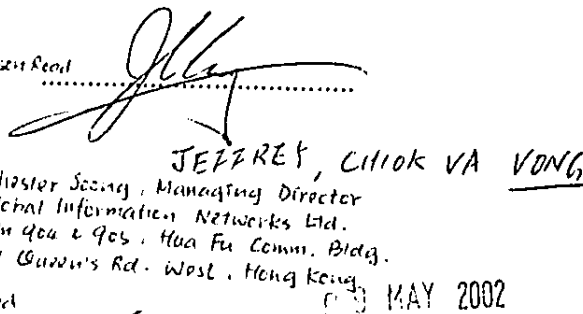 Read
JEFFREY, CHIOK VA VONG
Soong, Managing Director
Information Networks Ltd.
904 & 905, Hua Fu Comm. Bldg.
Queen's Rd. West, Hong Kong
MAY 2002